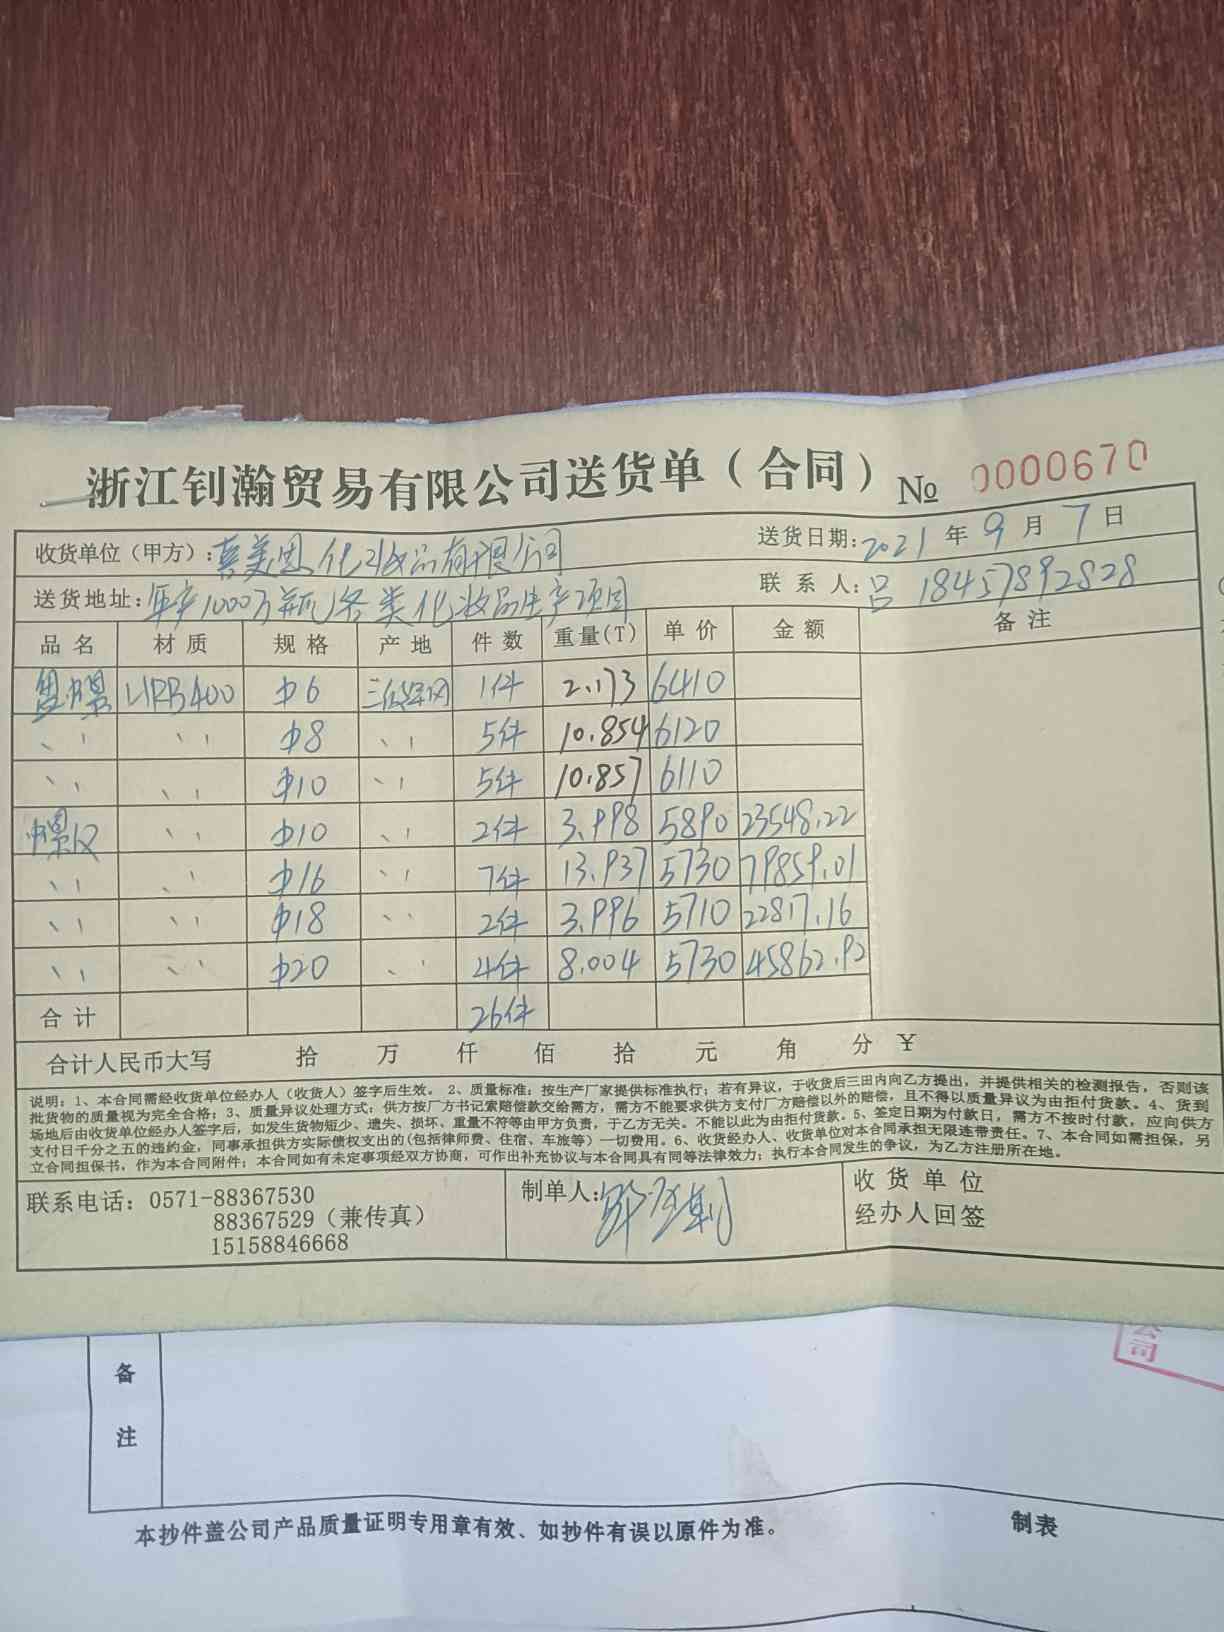 浙江钊瀚贸易有限公司送货单（合同） № 0000670
收货单位（甲方）：喜美恩化妆品有限公司 送货日期：2021年9月7日
送货地址：年产1000万瓶各类化妆品生产项目 联系人：吕 18457892828
品名 材质 规格 产地 件数 重量(T) 单价 金额 备注
盘螺 HRB400 Φ6 1件 2.173 6410
〃 〃 Φ8 〃 5件 10.854 6120
〃 〃 Φ10 〃 5件 10.857 6110
螺纹 〃 Φ10 〃 2件 3.998 5890 23548.22
〃 〃 Φ16 〃 7件 13.937 5730 79859.01
〃 〃 Φ18 〃 2件 3.996 5710 22817.16
〃 〃 Φ20 〃 4件 8.004 5730 45862.92
合计 26件
合计人民币大写 拾 万 仟 佰 拾 元 角 分 ¥
说明：1、本合同需经收货单位经办人（收货人）签字后生效。2、质量标准：按生产厂家提供标准执行；若有异议，于收货后三日内向乙方提出，并提供相关的检测报告，否则该
批货物的质量视为完全合格；3、质量异议处理方式：供方按厂方书记索赔偿款交给需方，需方不能要求供方支付厂方赔偿以外的赔偿，且不得以质量异议为由拒付货款。4、货到
场地后由收货单位经办人签字后，如发生货物短少、遗失、损坏、重量不符等由甲方负责，于乙方无关。不能以此为由拒付货款。5、签定日期为付款日，需方不按时付款，应向供方
支付日千分之五的违约金，同事承担供方实际债权支出的(包括律师费、住宿、车旅等）一切费用。6、收货经办人、收货单位对本合同承担无限连带责任。7、本合同如需担保，另
立合同担保书，作为本合同附件；本合同如有未定事项经双方协商，可作出补充协议与本合同具有同等法律效力；执行本合同发生的争议，为乙方注册所在地。
联系电话：0571-88367530 制单人： 收货单位
88367529（兼传真） 经办人回签
15158846668
公司
备
注
本抄件盖公司产品质量证明专用章有效、如抄件有误以原件为准。 制表